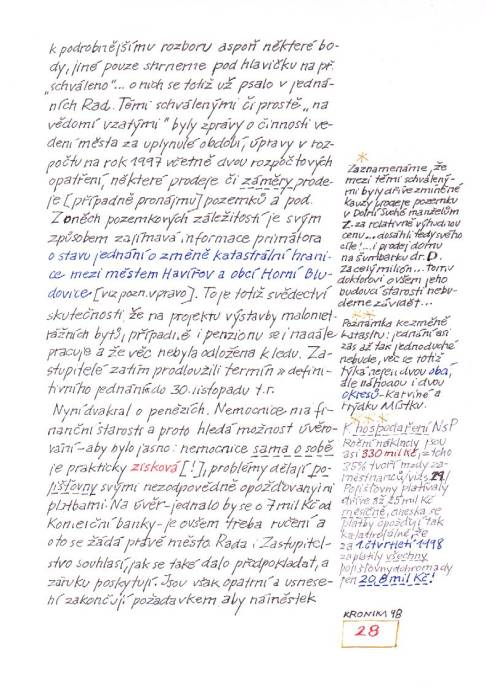 k podrobnějšímu rozboru aspoň některé bo-
dy, jiné pouze shrneme pod hlavičku na př.
„schváleno"... o nich se totiž už psalo v jedná-
ních Rad. Těmi schválenými či prostě „na
vědomí vzatými" byly zprávy o činnosti ve-
dení města za uplynulé období, úpravy v roz-
počtu na rok 1997 včetně dvou rozpočtových
opatření, některé prodeje či záměry prode-
je [případně pronájmu] pozemků a pod.
Z oněch pozemkových záležitostí je svým
způsobem zajímavá informace primátora
o stavu jednání o změně katastrální hrani-
ce mezi městem Havířov a obcí Horní Blu-
dovice [viz pozn. vpravo]. To je totiž svědectví
skutečnosti, že na projektu výstavby malomet-
rážních bytů, případně i penzionu se i nadále
pracuje a že věc nebyla odložena k ledu. Za-
stupitelé zatím prodloužili termín » defini-
tivního jednání« do 30. listopadu t.r.
Nyní dvakrát o penězích. Nemocnice má fi-
nanční starosti a proto hledá možnost úvěro-
vání – aby bylo jasno: nemocnice sama o sobě
je prakticky zisková [!], problémy dělají po-
jišťovny svými nezodpovědně opožďovanými
platbami. Na úvěr – jednalo by se o 7 mil Kč od
Komerční banky – je ovšem třeba ručení a
o to se žádá právě město. Rada i Zastupitel-
stvo souhlasí, jak se také dalo předpokládat, a
záruku poskytují. Jsou však opatrní a usnese-
ní zakončují požadavkem aby náměstek
*
Zaznamenáme, že
mezi těmi schválený-
mi byly dříve zmíněné
kauzy prodeje pozemku
v Dolní Suché manželům
Z. za relativně výhodnou
cenu... dosáhli tedy svého
cíle!... i prodej domu
na Švmbarku dr. D.
Za celý milión... tomu
doktorovi ovšem jeho
budoucí starosti nebu-
deme závidět...
**
Poznámka ke změně
katastru: jednání asi
zas až tak jednoduché
nebude, věc se totiž
týká nejen dvou obcí,
ale náhodou i dvou
okresů – Karviné a
Frýdku Místku.
***
K hospodaření NsP
Roční náklady jsou
asi 330 mil Kč, z toho
35% tvoří mzdy za-
městnanců/viz s. 29/
Pojišťovny platívaly
dříve až 25 mil Kč
měsíčně, dneska se
platby opožďují tak
katastrofálně, že
za 1. čtvrtletí 1998
zaplatily všechny
pojišťovny dohromady
jen 20,8 mil Kč!
KRONIKA 98
28